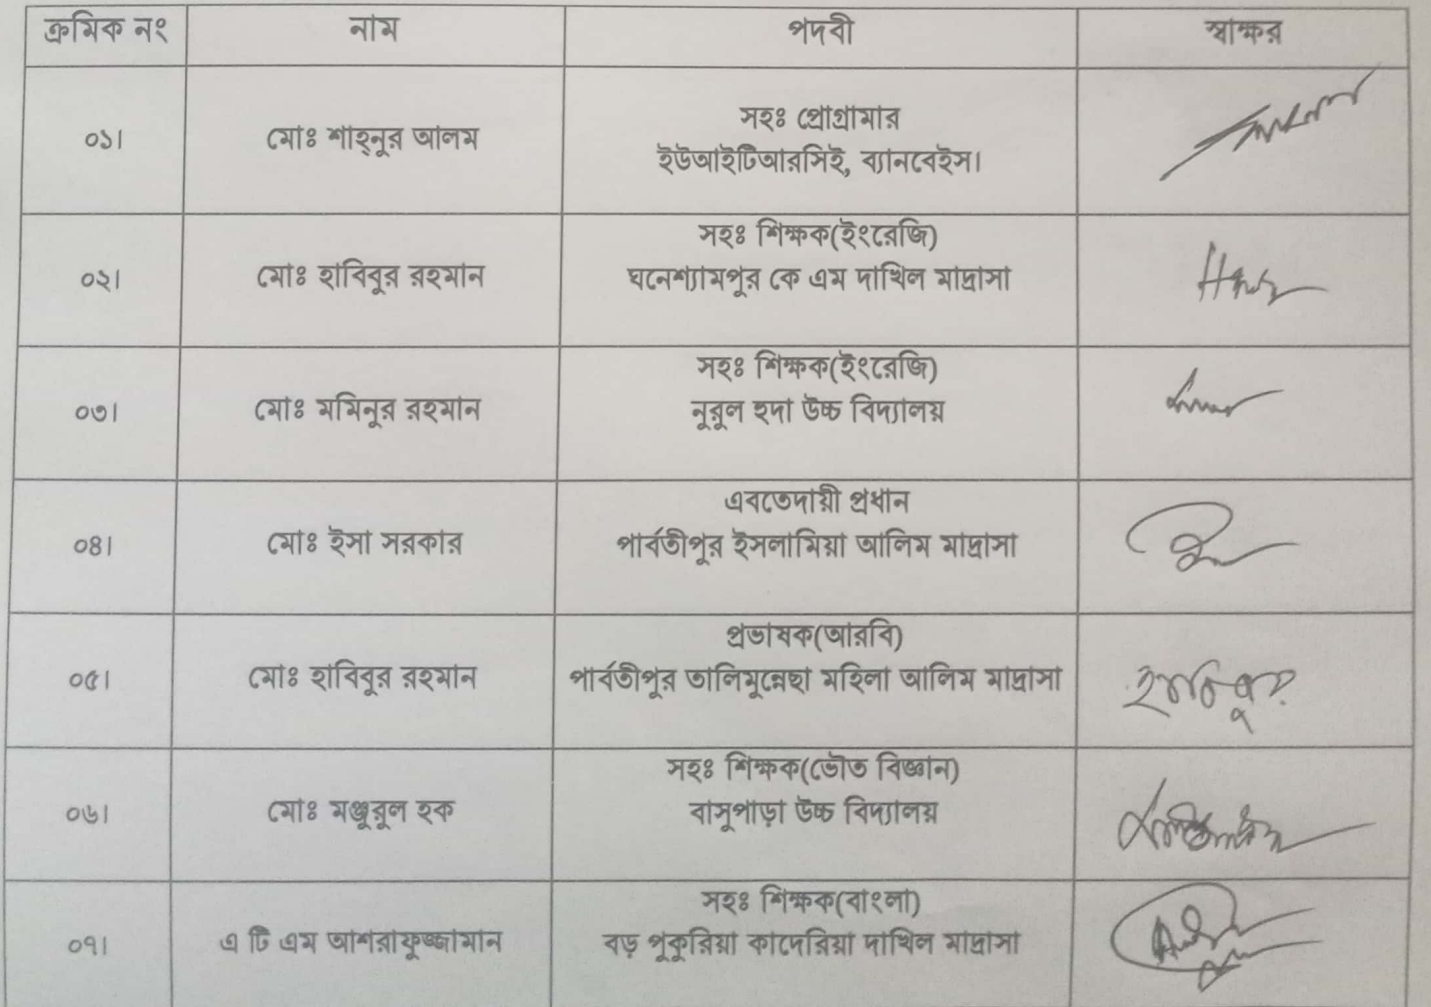 ক্রমিক নং নাম পদবী স্বাক্ষর
০১। মোঃ শাহ্নুর আলম সহঃ প্রোগ্রামার
ইউআইটিআরসিই, ব্যানবেইস।
০২। মোঃ হাবিবুর রহমান সহঃ শিক্ষক(ইংরেজি)
ঘনেশ্যামপুর কে এম দাখিল মাদ্রাসা
০৩। মোঃ মমিনুর রহমান সহঃ শিক্ষক(ইংরেজি)
নূরুল হুদা উচ্চ বিদ্যালয়
০৪। মোঃ ইসা সরকার এবতেদায়ী প্রধান
পার্বতীপুর ইসলামিয়া আলিম মাদ্রাসা
০৫। মোঃ হাবিবুর রহমান প্রভাষক(আরবি)
পার্বতীপুর তালিমুন্নেছা মহিলা আলিম মাদ্রাসা
০৬। মোঃ মঞ্জুরুল হক সহঃ শিক্ষক(ভৌত বিজ্ঞান)
বাসুপাড়া উচ্চ বিদ্যালয়
০৭। এ টি এম আশরাফুজ্জামান সহঃ শিক্ষক(বাংলা)
বড় পুকুরিয়া কাদেরিয়া দাখিল মাদ্রাসা